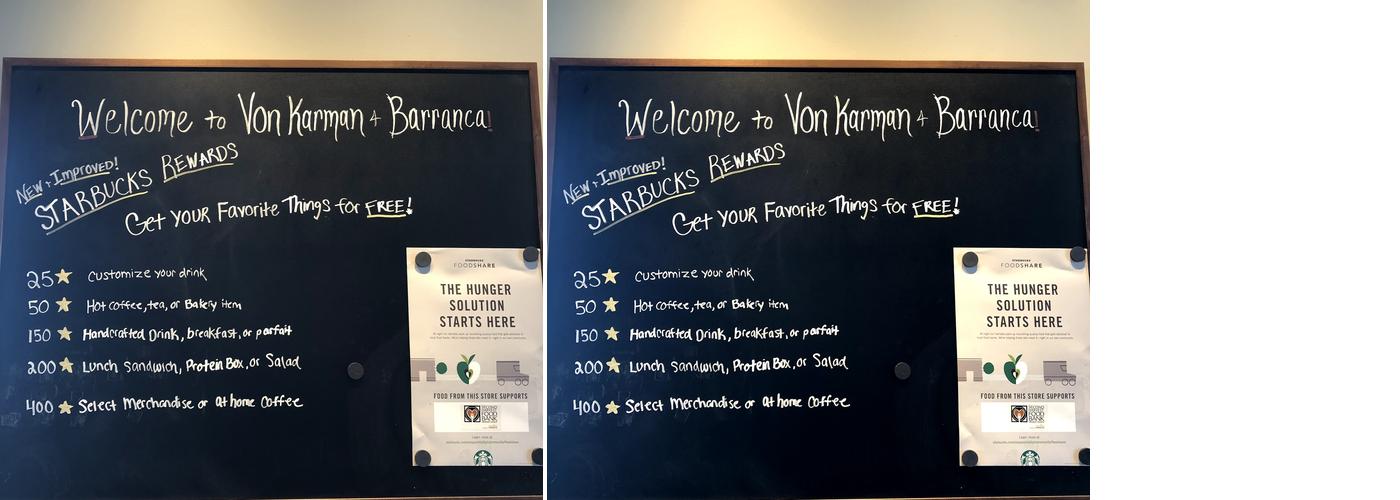 Welcome to Von Karman & Barranca!
New & Improved!
STARBUCKS REWARDS
Get YOUR Favorite Things for FREE!
25 ★ Customize your drink
50 ★ Hot coffee, tea, or Bakery item
150 ★ Handcrafted Drink, breakfast, or parfait
200 ★ Lunch Sandwich, Protein Box, or Salad
400 ★ Select Merchandise or at home Coffee
STARBUCKS
FOODSHARE
THE HUNGER
SOLUTION
STARTS HERE
FOOD FROM THIS STORE SUPPORTS
SECOND HARVEST
FOOD
BANK
Learn more at
Welcome to Von Karman & Barranca!
New & Improved!
STARBUCKS REWARDS
Get YOUR Favorite Things for FREE!
25 ★ Customize your drink
50 ★ Hot coffee, tea, or Bakery item
150 ★ Handcrafted Drink, breakfast, or parfait
200 ★ Lunch Sandwich, Protein Box, or Salad
400 ★ Select Merchandise or at home Coffee
STARBUCKS
FOODSHARE
THE HUNGER
SOLUTION
STARTS HERE
FOOD FROM THIS STORE SUPPORTS
SECOND HARVEST
FOOD
BANK
Learn more at